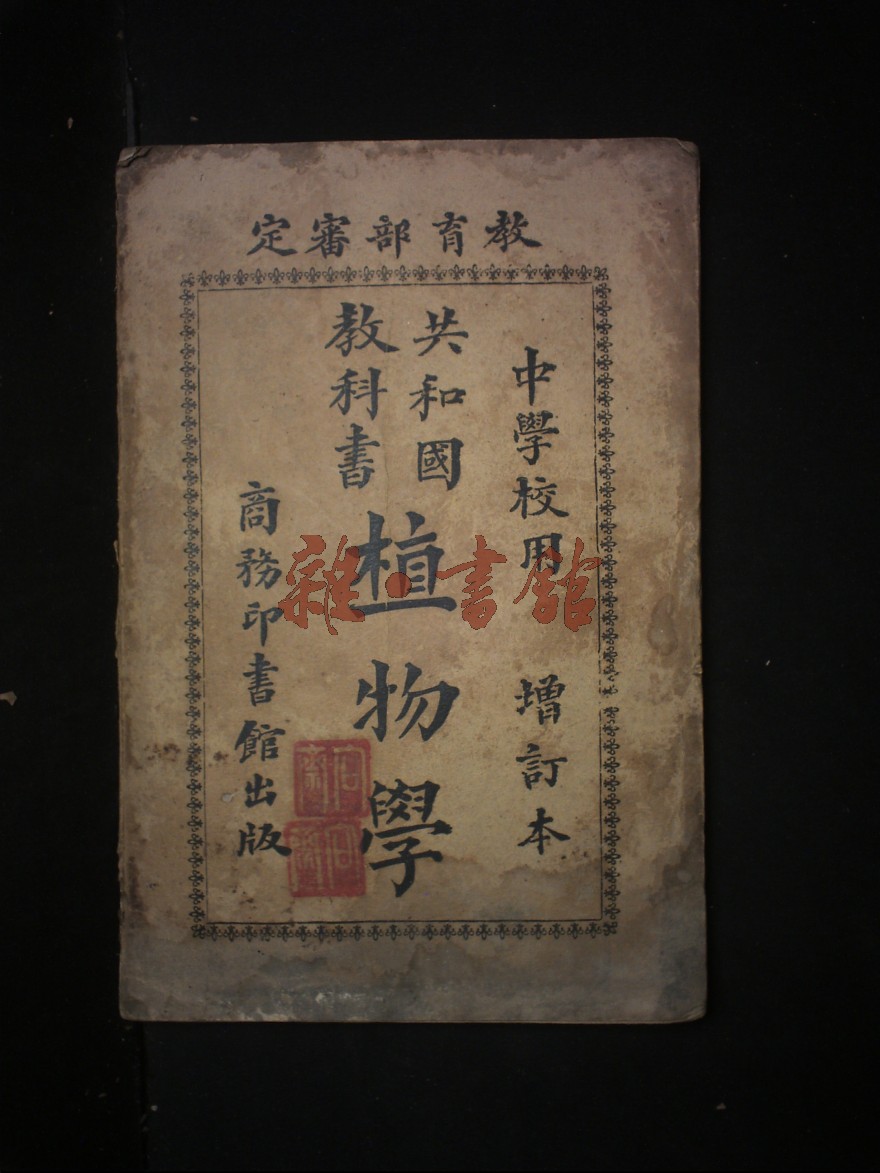 教育部審定
中學校用 增訂本
共和國
教科書
植物學
商務印書館出版
雜·書館